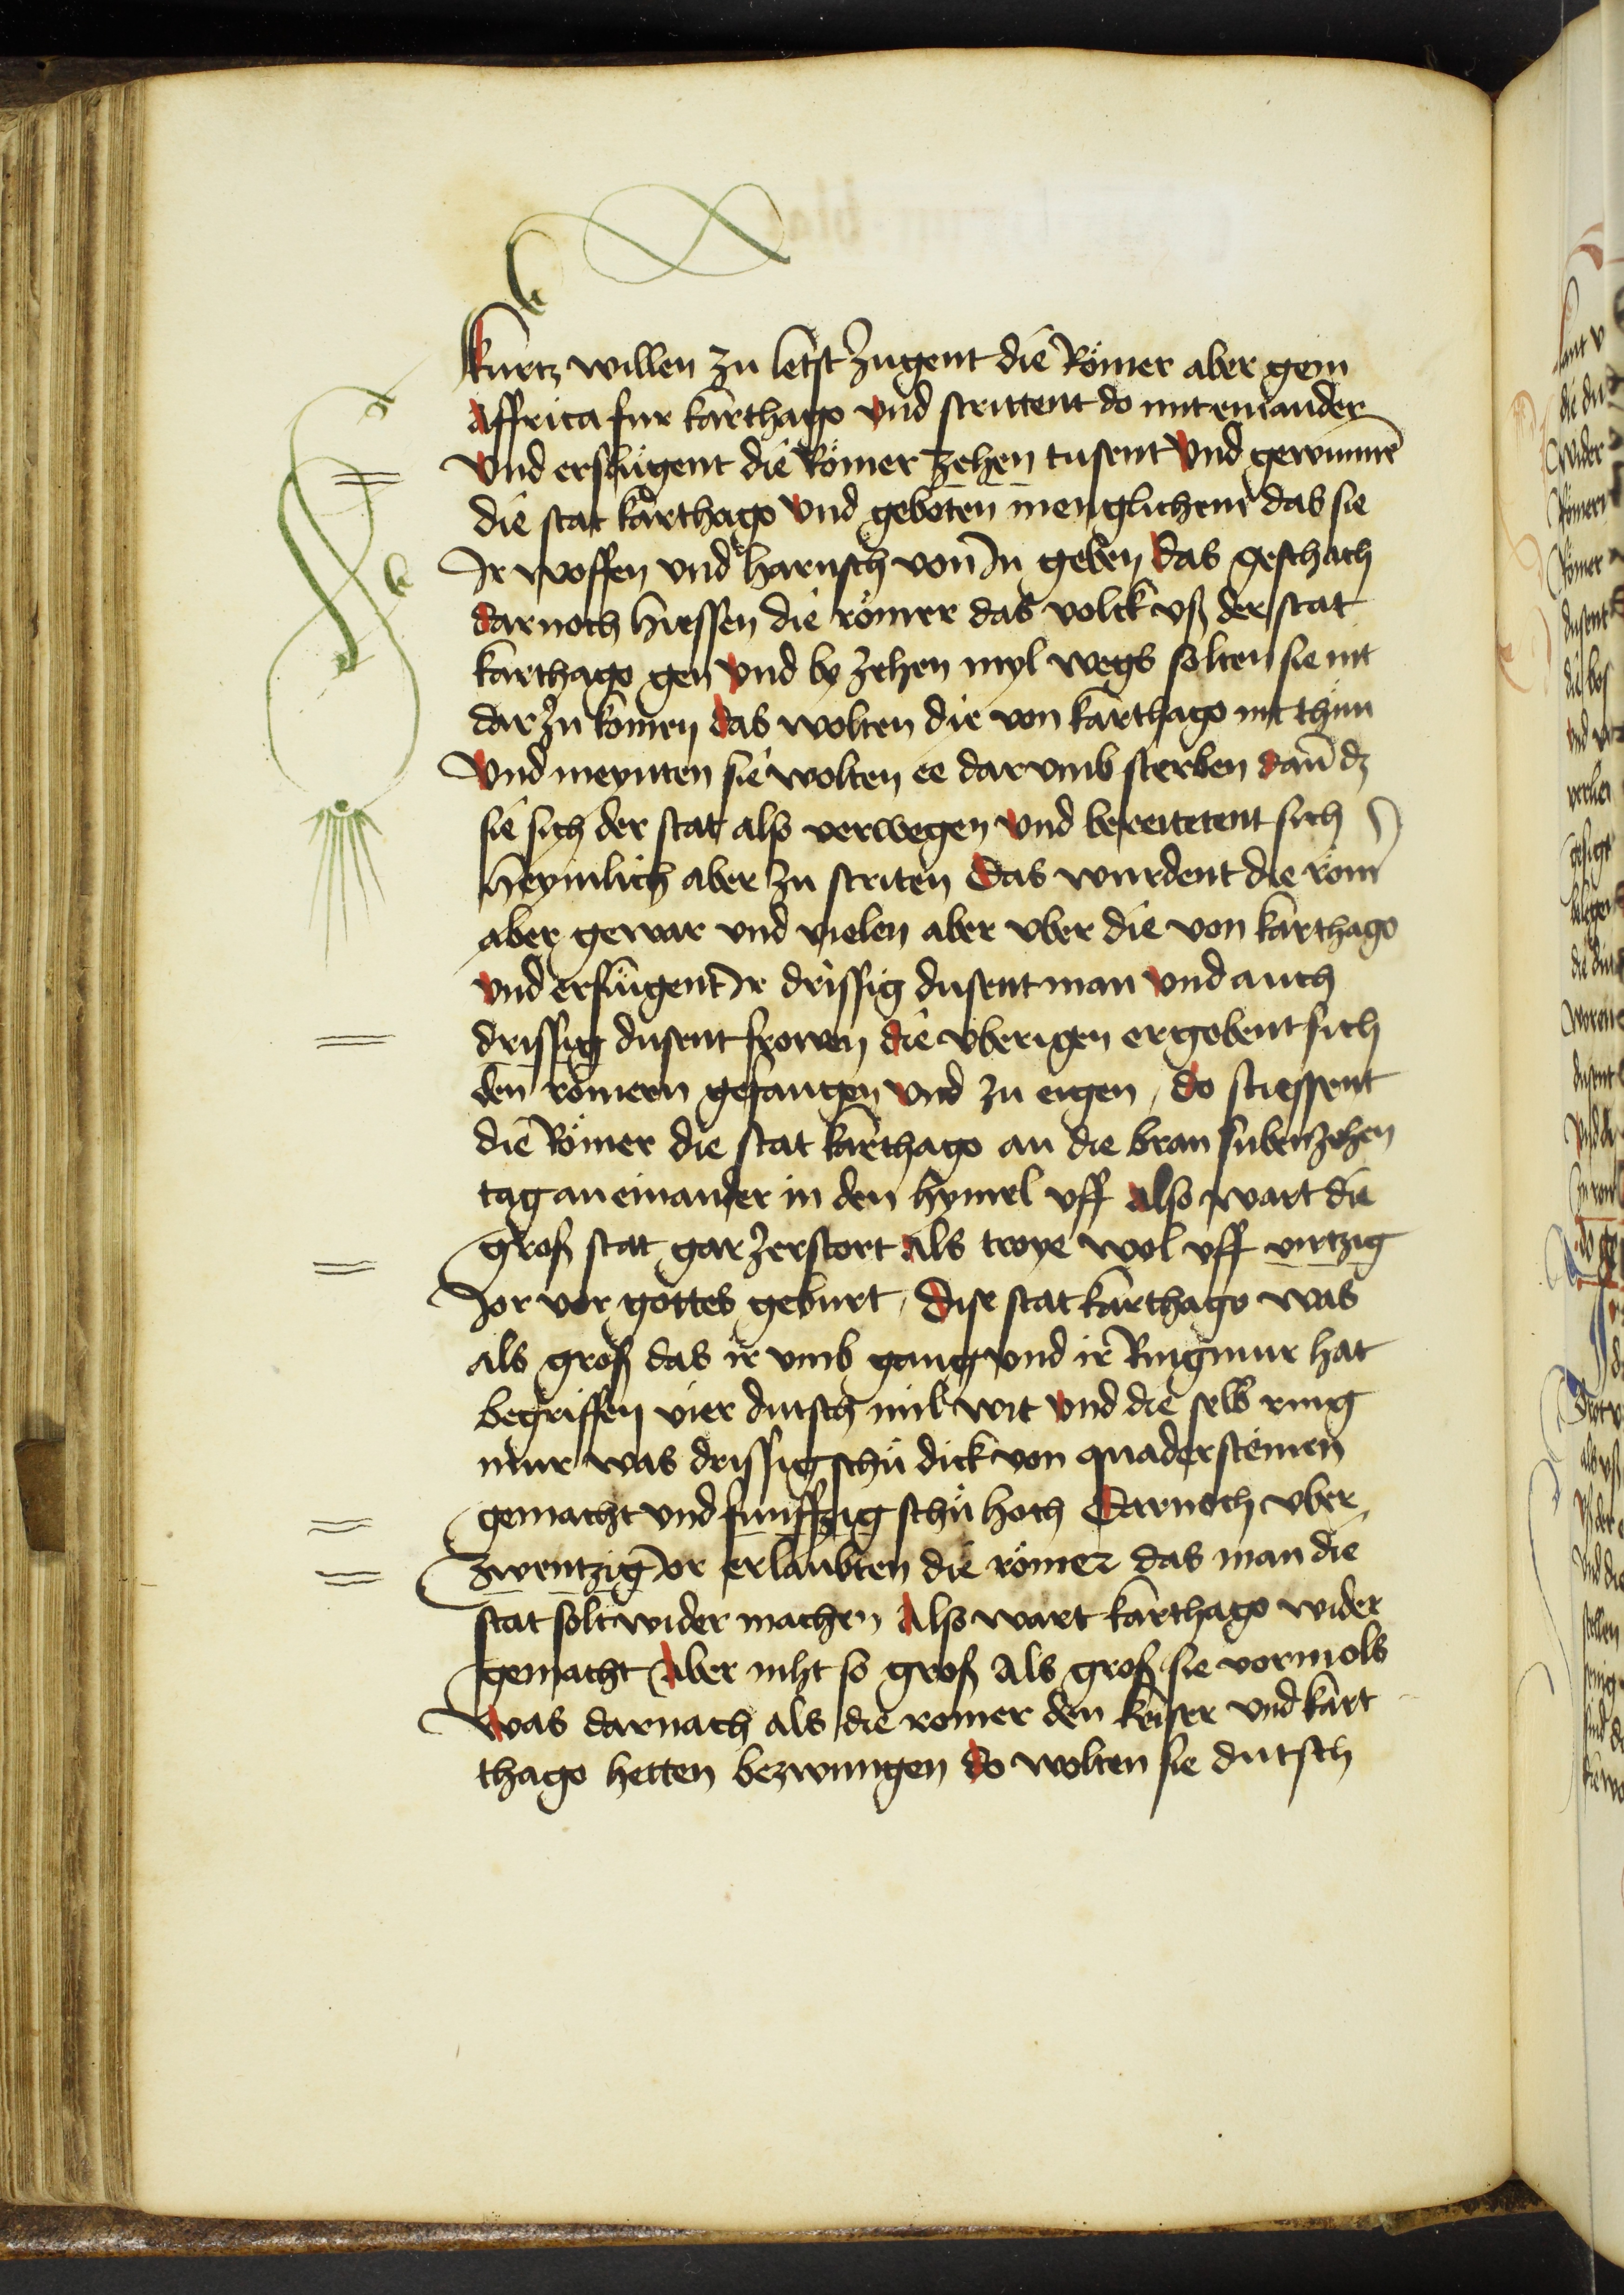 kurtz willen zu letst zugent die Römer aber gein
affrica fur karthago vnd strittent do mit einander
vnd erslůgent die Römer zehen tusent vnd gewunnē
die stat karthago vnd geboten menglichem das sie
Ir woffen vnd harnsch von In geben das geschach
darnoch hiessen die römer das volck vß der stat
karthago gen vnd by zehen myl wegs solten sie nit
dar zu komen das wolten die von karthago nit thůn
vnd meynten sie wolten ee darvmb sterben dañ dz
sie sich der stat also verwegen vnd bereitetent sich
heymlich aber zu striten das wurdent die röm
aber gewar vnd vielen aber vber die von karthago
vnd erslůgent Ir drissig dusent man vnd auch
drissig dusent frowen die vberigen ergobent sich
den römern gefangen vnd zu eigen / do stiessent
die Römer die stat karthago an die bran subenzehen
tag an einander in den hymel vff also wart die
groß stat gar zerstort als troye wol vff virtzig
Jor vor gottes geburt / dise stat karthago was
als groß das ir vmb gang vnd ir Ringmur hat
begriffen vier dutsch mil wit vnd die selb ring
mur was drissig schů dick von quadersteinen
gemacht vnd funffzig schů hoch darnoch vber
zwentzig Jor erlaubten die römer das man die
stat solt wider machen also wart karthago wider
gemacht aber niht so groß als groß sie vormols
was darnach als die romer den keiser vnd kart
thago hetten bezwungen do wolten sie dutsch